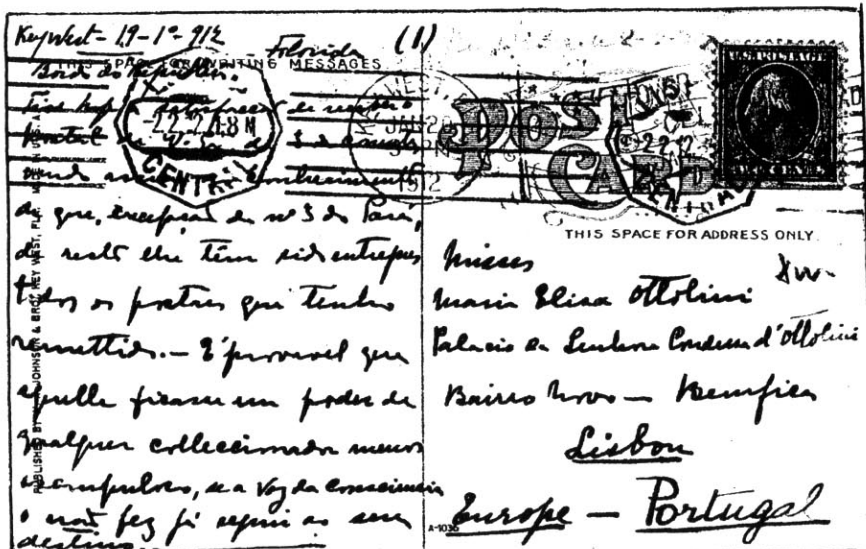 Key West - 19-1º-912
Florida
(1)
THIS SPACE FOR WRITING MESSAGES
Bordo do República.
Tive hoje a satisfação de
postal de V. Ex.ª de 3 do
conhecimento
de que, excepção do nº 3 do Pará,
de resto lhe têm sido entregues
todos os postaes que tenho
remettido. - É provavel que
aquelle ficasse em poder de
qualquer colleccionador menos
escrupuloso, se a voz da consciencia
o não fez já seguir ao seu
destino.
PUBLISHED BY JOHNSON & BRO., KEY WEST, FLA.
KEY WEST
JAN 20
1912
22 2 - 18 M
CENTRAL
POST CARD
U.S. POSTAGE
THIS SPACE FOR ADDRESS ONLY
Misses
Maria Elisa Ottolini
Palacio da Senhora Condessa d'Ottolini
Bairro Novo - Bemfica
Lisbon
Europe - Portugal
A-1036